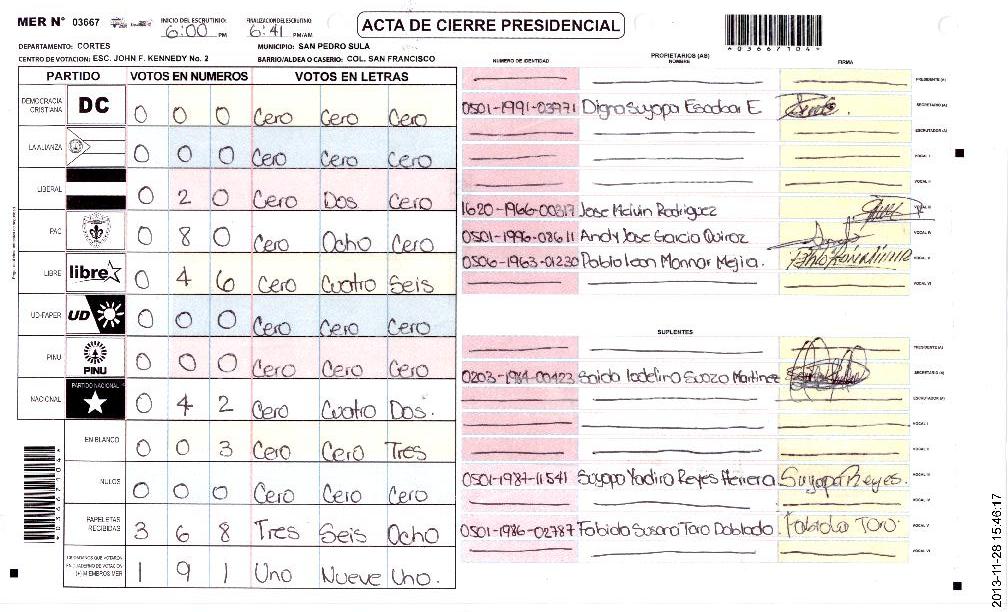 MER N° 03667
INICIO DEL ESCRUTINIO: 6:00 PM
FINALIZACION DEL ESCRUTINIO 6:41 PM/AM
ACTA DE CIERRE PRESIDENCIAL
*03667104*
DEPARTAMENTO: CORTES
MUNICIPIO: SAN PEDRO SULA
CENTRO DE VOTACION: ESC. JOHN F. KENNEDY No. 2
BARRIO/ALDEA O CASERIO: COL. SAN FRANCISCO
PARTIDO VOTOS EN NUMEROS VOTOS EN LETRAS
DEMOCRACIA CRISTIANA DC 0 0 0 Cero Cero Cero
LA ALIANZA 0 0 0 Cero Cero Cero
LIBERAL 0 2 0 Cero Dos Cero
PAC 0 8 0 Cero Ocho Cero
LIBRE libre 0 4 6 Cero Cuatro Seis
UD-FAPER UD 0 0 0 Cero Cero Cero
PINU PINU 0 0 0 Cero Cero Cero
NACIONAL PARTIDO NACIONAL 0 4 2 Cero Cuatro Dos.
EN BLANCO 0 0 3 Cero Cero Tres
NULOS 0 0 0 Cero Cero Cero
PAPELETAS RECIBIDAS 3 6 8 Tres Seis Ocho
CIUDADANOS QUE VOTARON EN CUADERNO DE VOTACION (+) MIEMBROS MER 1 9 1 Uno Nueve Uno.
*03667104*
PROPIETARIOS (AS)
NUMERO DE IDENTIDAD NOMBRE FIRMA
PRESIDENTE (A)
0501-1991-03971 Digna Suyapa Escobar E SECRETARIO (A)
ESCRUTADOR (A)
VOCAL I
VOCAL II
1620-1966-00317 Jose Melvin Rodriguez VOCAL III
0501-1996-08611 Andy Jose Garcia Quiroz VOCAL IV
0506-1963-01230 Pablo leon Monnar Mejia. VOCAL V
VOCAL VI
SUPLENTES
PRESIDENTE (A)
0203-1984-00423 Saida Iadelina Suazo Martinez SECRETARIO (A)
ESCRUTADOR (A)
VOCAL I
VOCAL II
0501-1987-11541 Suyapa Yadira Reyes Herrera Suyapa Reyes. VOCAL III
VOCAL IV
0501-1986-02787 Fabiola Susana Toro Doblado. Fabiola Toro VOCAL V
VOCAL VI
2013-11-28 15:46:17